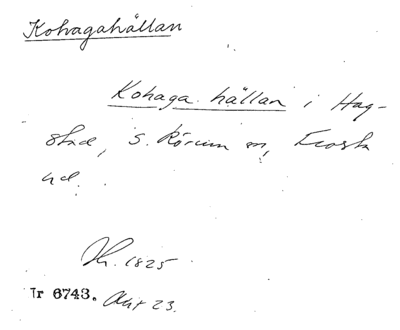 Kohagahällan
Kohaga hällan i Hag-
stad, S. Rörum sn, Frosta
hd.
Jfr. 1825
Ir 6743. Akt 23.